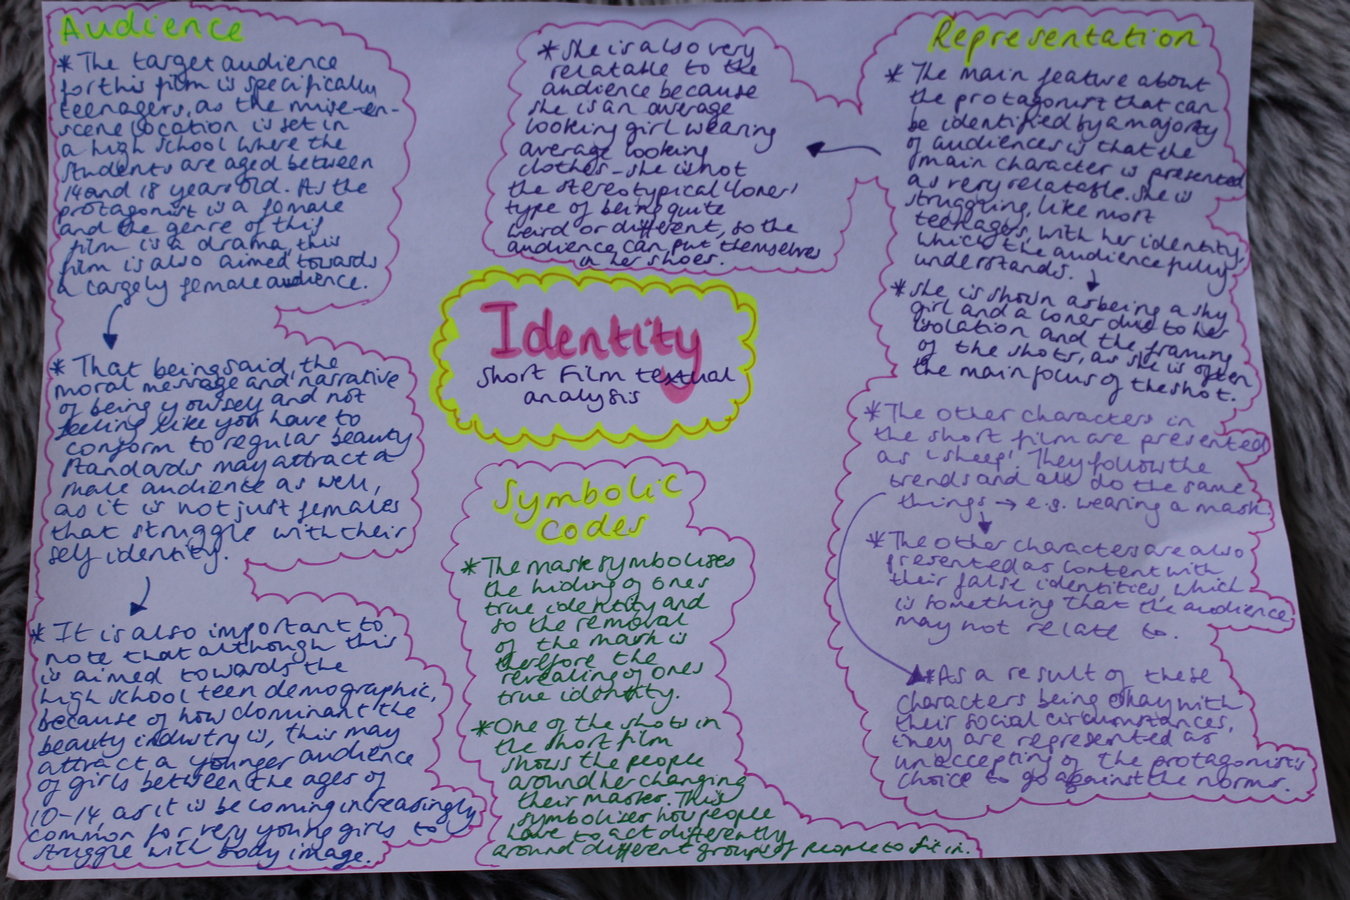 Audience
* The target audience
for this film is specifically
teenagers, as the mise-en-
scene (location is set in
a high school where the
students are aged between
14 and 18 years old. As the
protagonist is a female
and the genre of this
film is a drama, this
film is also aimed towards
a largely female audience.
* That being said, the
moral message and narrative
of being yourself and not
feeling like you have to
conform to regular beauty
standards may attract a
male audience as well,
as it is not just females
that struggle with their
self identity.
* It is also important to
note that although this
is aimed towards the
high school teen demographic,
because of how dominant the
beauty industry is, this may
attract a younger audience
of girls between the ages of
10-14, as it is becoming increasingly
common for very young girls to
struggle with body image.
* She is also very
relatable to the
audience because
she is an average
looking girl wearing
average looking
clothes - she is not
the stereotypical 'loner'
type of being quite
weird or different, so the
audience can put themselves
in her shoes.
Identity
short film textual
analysis
Symbolic
Codes
* The mask symbolises
the hiding of ones
true identity and
so the removal
of the mask is
therefore the
revealing of ones
true identity.
* One of the shots in
the short film
shows the people
around her changing
their masks. This
symbolises how people
have to act differently
around different groups of people to fit in.
Representation
* The main feature about
the protagonist that can
be identified by a majority
of audiences is that the
main character is presented
as very relatable. She is
struggling, like most
teenagers, with her identity,
which the audience fully
understands.
* She is shown as being a shy
girl and a loner due to her
isolation and the framing
of the shots, as she is often
the main focus of the shot.
* The other characters in
the short film are presented
as 'sheep'. They follow the
trends and all do the same
things → e.g. wearing a mask
* The other characters are also
presented as content with
their false identities, which
is something that the audience
may not relate to.
* As a result of these
characters being okay with
their social circumstances,
they are represented as
unaccepting of the protagonist's
choice to go against the norms.